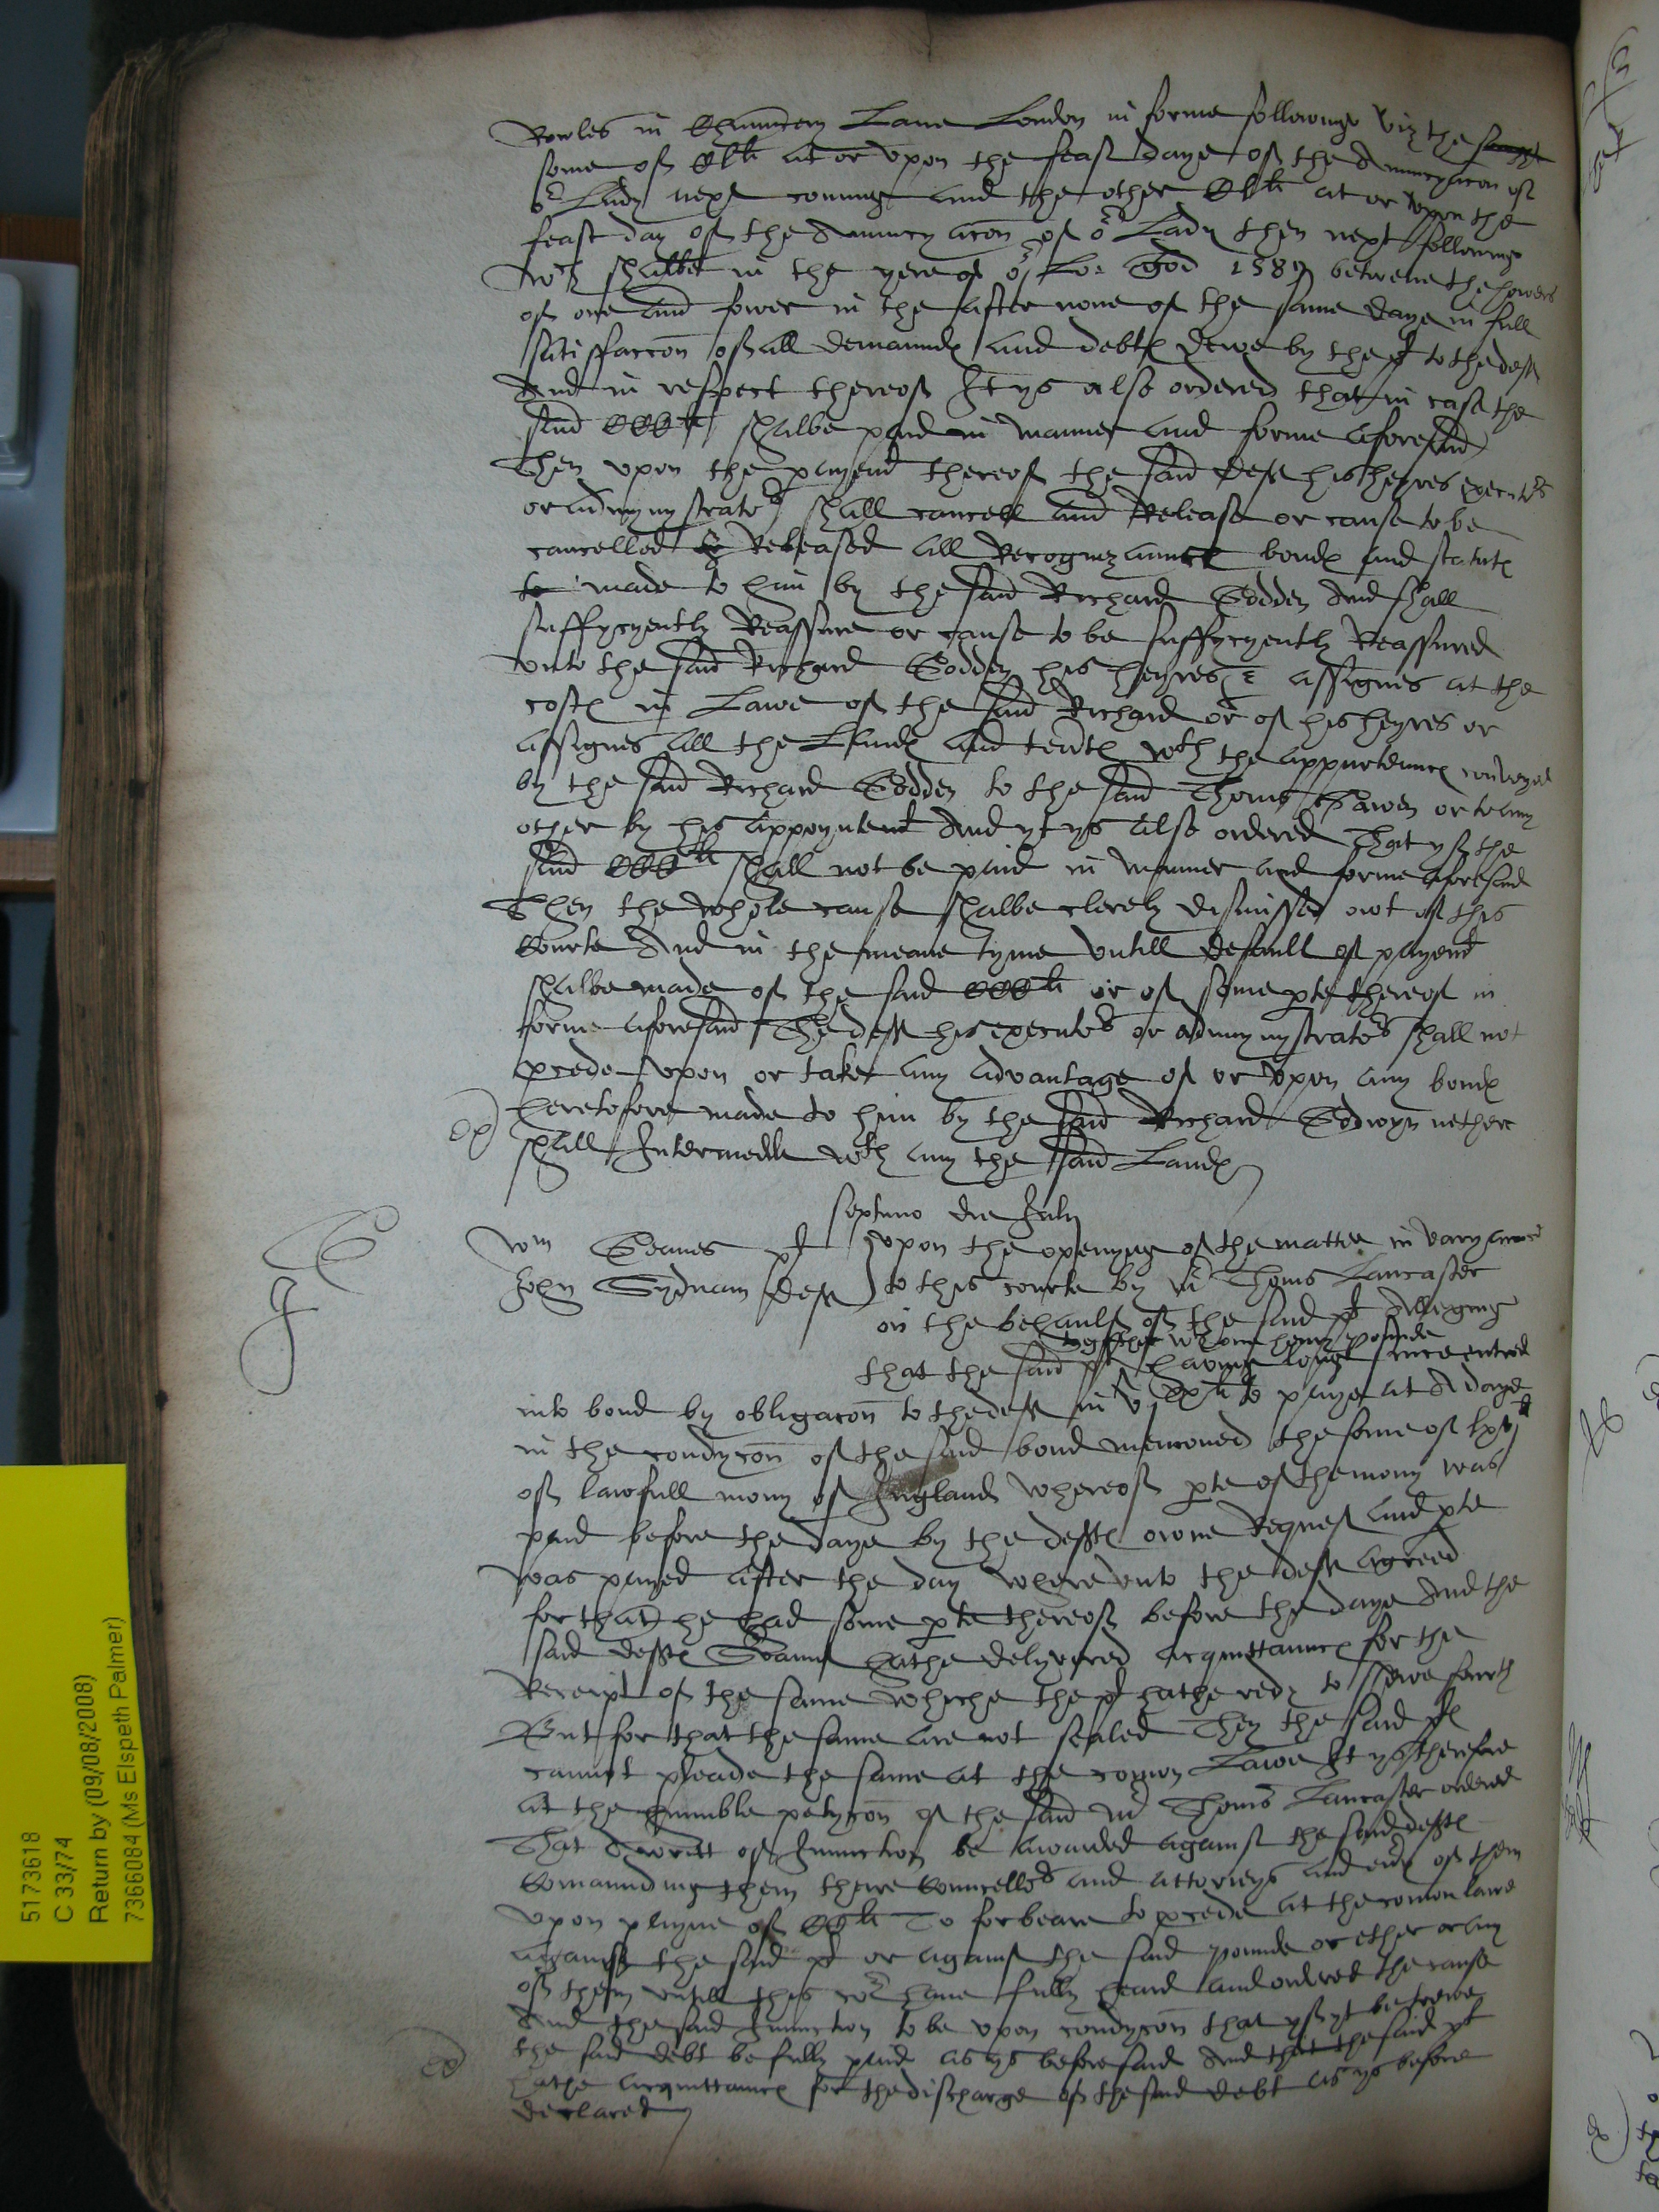 Rowles in Chauncery Lane London in forme followinge viz the
some of CLli at or vpon the feast daye of the Annuncyacon of
or Lady next coming and the other CLli at or vpon the
feast day of the Annuncyacon of or Lady then next followinge
wch shalbe in the yere of or Lo: God 1587 betwene the howers
of one and fower in the after none of the same daye in full
satisfaccon of all demaundes and debtes dewe by the plt to the deft
And in respect thereof It ys also ordered that in case the
said CCCli shalbe paid in manner and forme aforesaid
Then vpon the payemt thereof the said deft his heyres executors
or admynystrators shall cancell and Release or cause to be
cancelled & Released all Recognizaunces bondes and statutes
made to him by the said Richard Godden And shall
suffycyently Reassure or cause to be suffycyently Reassured
vnto the said Richard Godden his heyres & assignes at the
costes in Lawe of the said Richard or of his heyres or
assignes all the Landes and tentes wth the appurtennces conveyed
by the said Richard Godden to the said Thoms or to any
other by his appoyntemt And yt ys also ordered That yf the
said CCCli shall not be paid in manner and forme aforesaid
Then the whole cause shalbe clerely dismissed owt of this
Courte And in the meane tyme vntill default of payemt
shalbe made of the said CCCli or of some pte thereof in
forme aforesaid The deft his executors or admynystrators shall not
procede vpon or take any advantage of or vpon any bondes
heretofore made to him by the said Richard Godwyn nether
shall Intermedle wth any the said Landes
septimo die July
Wm Geanes plt vpon the openyng of the matter in varyaunce
John Sydnam deft to this courte by Mr Thoms Lancaster
on the behaulf of the said plt Alleging
together wth one henry pounde
that the said plt having longe since entred
into bond by obligacon to the deft in to paye at A daye
in the condycon of the said bond mencioned the some of
of lawfull mony of England whereof pte of the mony was
paid before the daye by the deftes owne Request and pte
was payed after the day wherevnto the deft agreed
for that he had some pte thereof before the daye And the
said deftes hathe delyvered acquittaunces for the
Receipt of the same whiche the plt hathe redy to shewe fourth
But for that the same are not sealed Then the said plt
cannot pleade the same at the comon Lawe It ys therefore
at the humble petycon of the said Mr Thoms Lancaster ordered
That A writt of Iniunction be awarded against the said deftes
Comaunding them there Councellors and attorneys and evry of them
vpon payne of CCli To forbeare to procede at the comon lawe
against the said plt or against the said pounde or ether or any
of them vntill this cort have fully heard and ordered the cause
And the said Iniunction to be vpon condycon that yf yt be trewe
the said debt be fully paid as ys before said And that the said plt
hathe acquittaunces for the discharge of the said debt as ys before
declared
5173618
C 33/74
Return by (09/08/2008)
7366084 (Ms Elspeth Palmer)